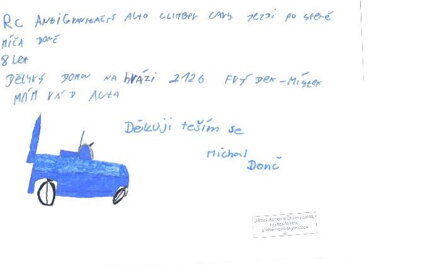 RC ANTIGRAVITAČNÍ AUTO CLIMBER CARS JEZDÍ PO STĚNĚ
MÍŠA DONĚ
8 LET
DĚTSKÝ DOMOV NA HRÁZI 2126 FRÝDEK-MÍSTEK
MÁM RÁD AUTA
Děkuji těším se
Michal
Donč